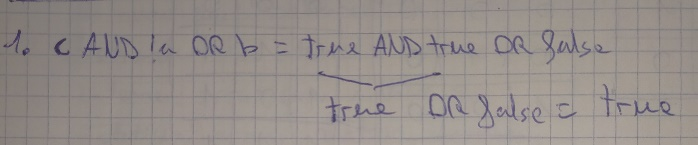 1. c AND !a OR b = true AND true OR false
true OR false = true